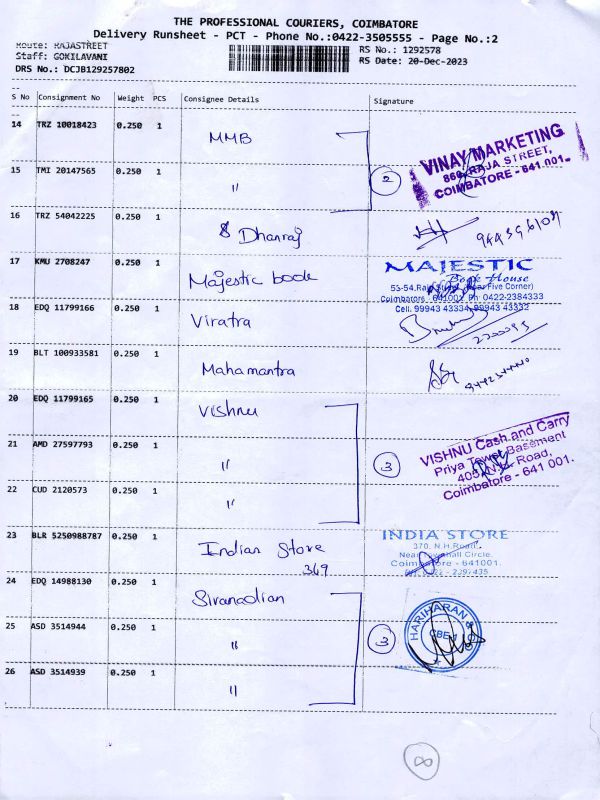 THE PROFESSIONAL COURIERS, COIMBATORE
Delivery Runsheet - PCT - Phone No.:0422-3505555 - Page No.:2
Route: RAJASTREET
Staff: GOKILAVANI
DRS No.: DCJB129257802
RS No.: 1292578
RS Date: 20-Dec-2023
S No Consignment No Weight PCS Consignee Details Signature
14 TRZ 10018423 0.250 1 MMB
15 TMI 20147565 0.250 1 "
2
VINAY MARKETING
860, RAJA STREET,
COIMBATORE - 641 001.
16 TRZ 54042225 0.250 1 Dhanraj
17 KMU 2708247 0.250 1 Majestic book
MAJESTIC
Book House
53-54, Raja Street, (Near Five Corner)
Coimbatore - 641001. Ph: 0422-2384333
Cell: 99943 43334, 99943 43332
18 EDQ 11799166 0.250 1 Viratra
19 BLT 100933581 0.250 1 Mahamantra
20 EDQ 11799165 0.250 1 Vishnu
21 AMD 27597793 0.250 1 "
22 CUD 2120573 0.250 1 "
3
VISHNU Cash and Carry
Priya Tower Basement
Road,
Coimbatore - 641 001.
23 BLR 5250988787 0.250 1 Indian Store
369
INDIA STORE
370, N.H.Road,
Near Townhall Circle,
Coimbatore - 641001.
24 EDQ 14988130 0.250 1
25 ASD 3514944 0.250 1 "
26 ASD 3514939 0.250 1 "
3
HARIHARAN &
CBE-1
8